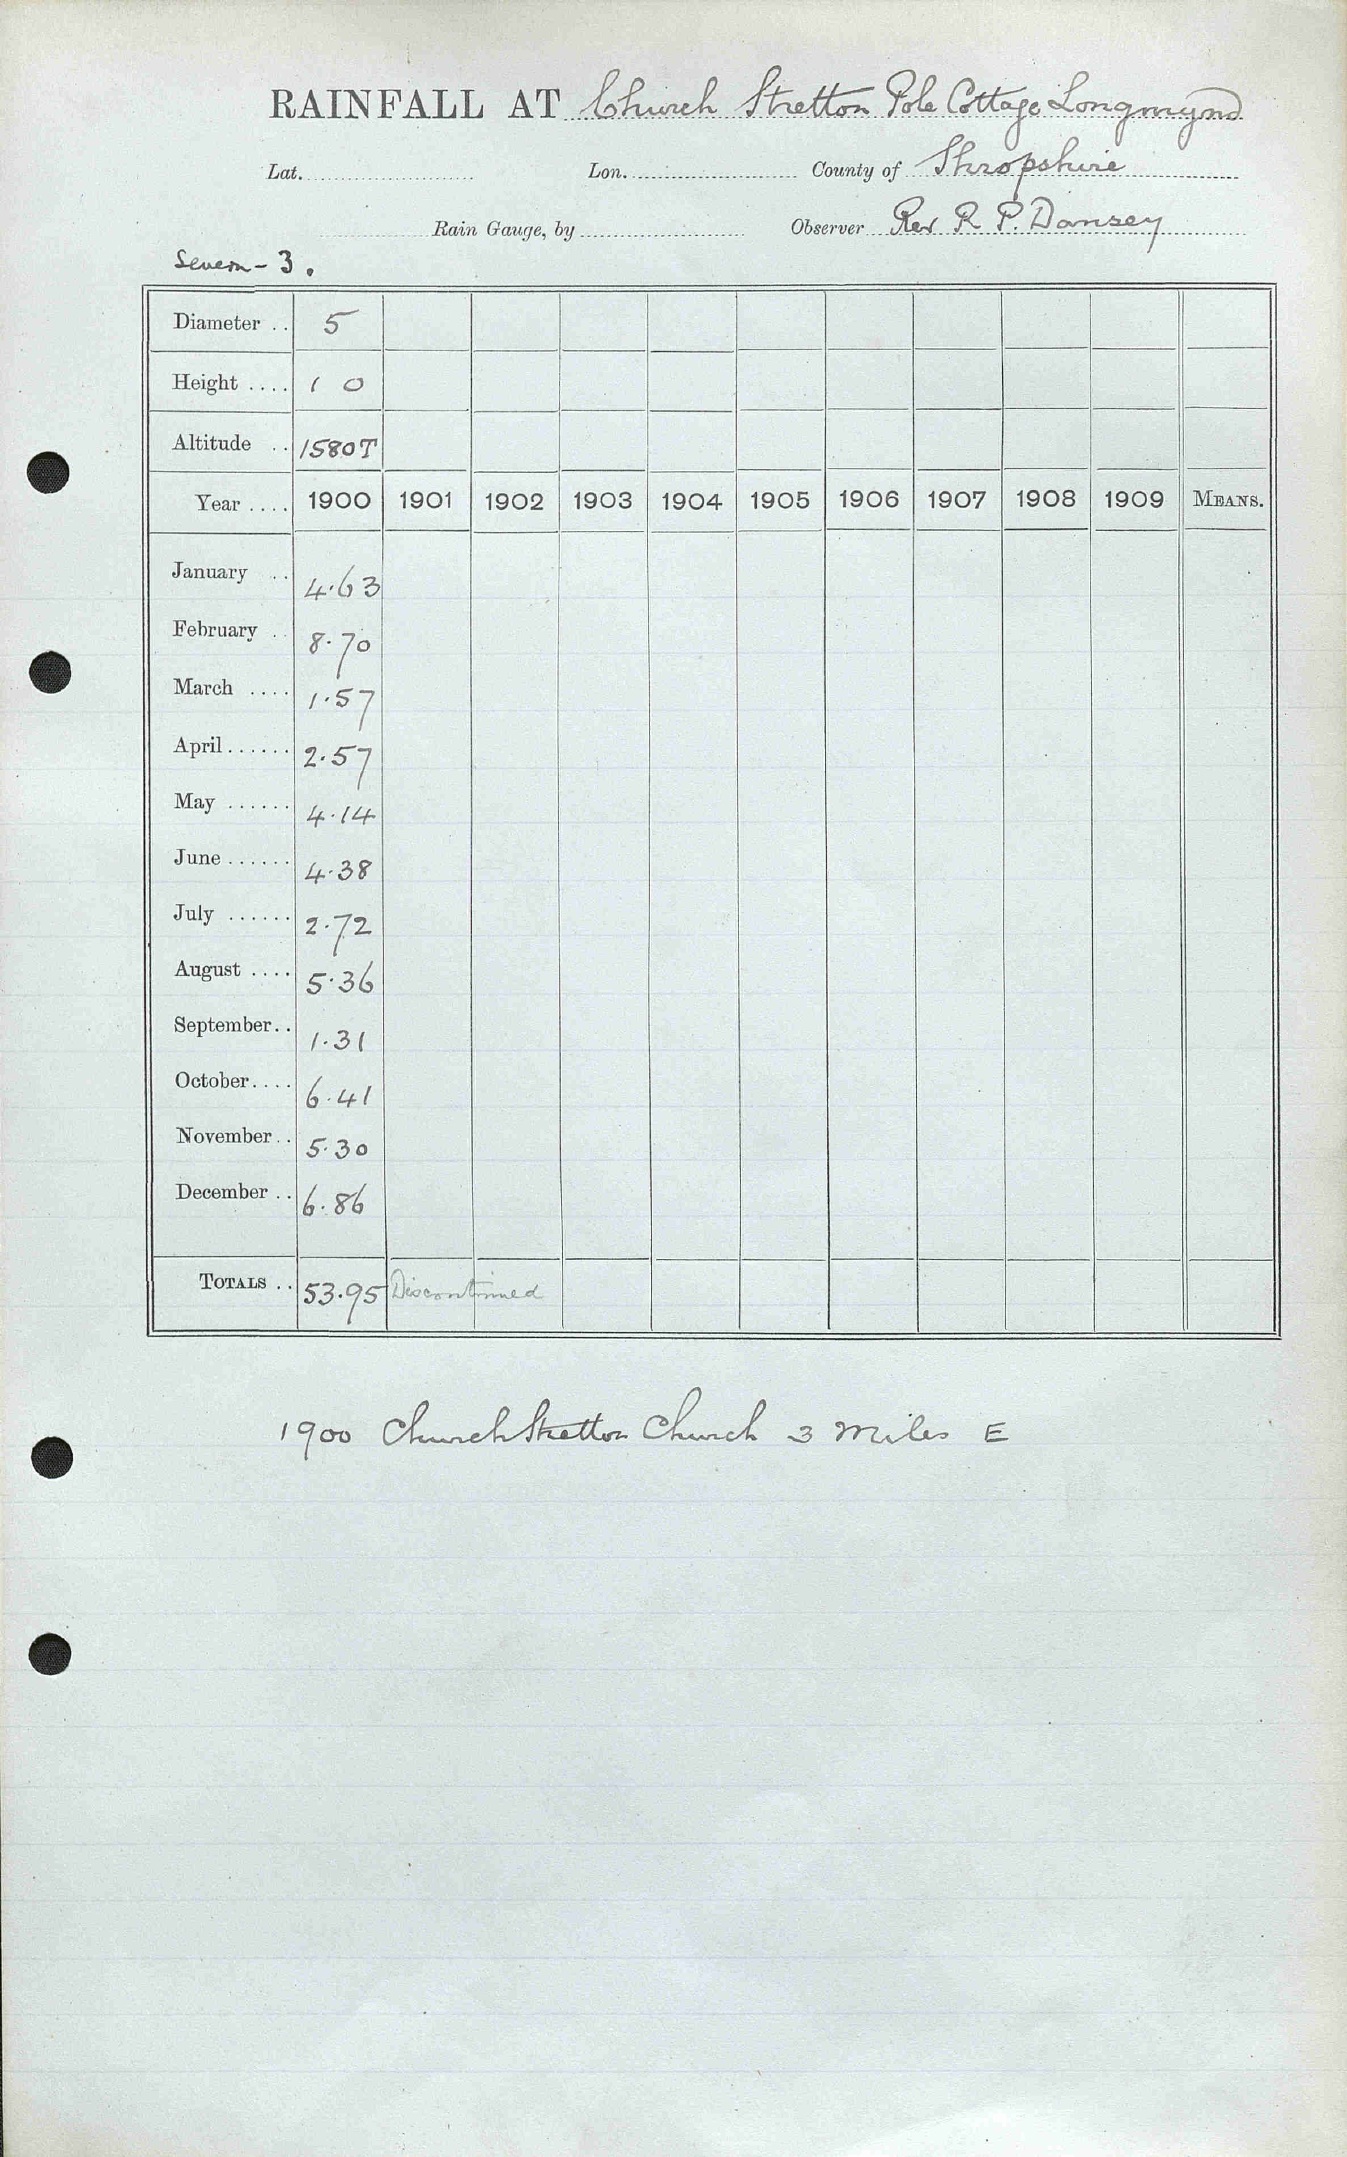 RAINFALL AT Church Stretton Pole Cottage Longmynd
Lat. Lon. County of Shropshire
Rain Gauge, by Observer Rev R P. Dansey
Severn - 3.
Diameter .. 5
Height .... 1 0
Altitude .. 1580T
Year .... 1900 1901 1902 1903 1904 1905 1906 1907 1908 1909 MEANS.
January .. 4.63
February .. 8.70
March .... 1.57
April...... 2.57
May ...... 4.14
June ...... 4.38
July ...... 2.72
August .... 5.36
September.. 1.31
October.... 6.41
November.. 5.30
December .. 6.86
TOTALS .. 53.95 Discontinued
1900 Church Stretton Church 3 miles E